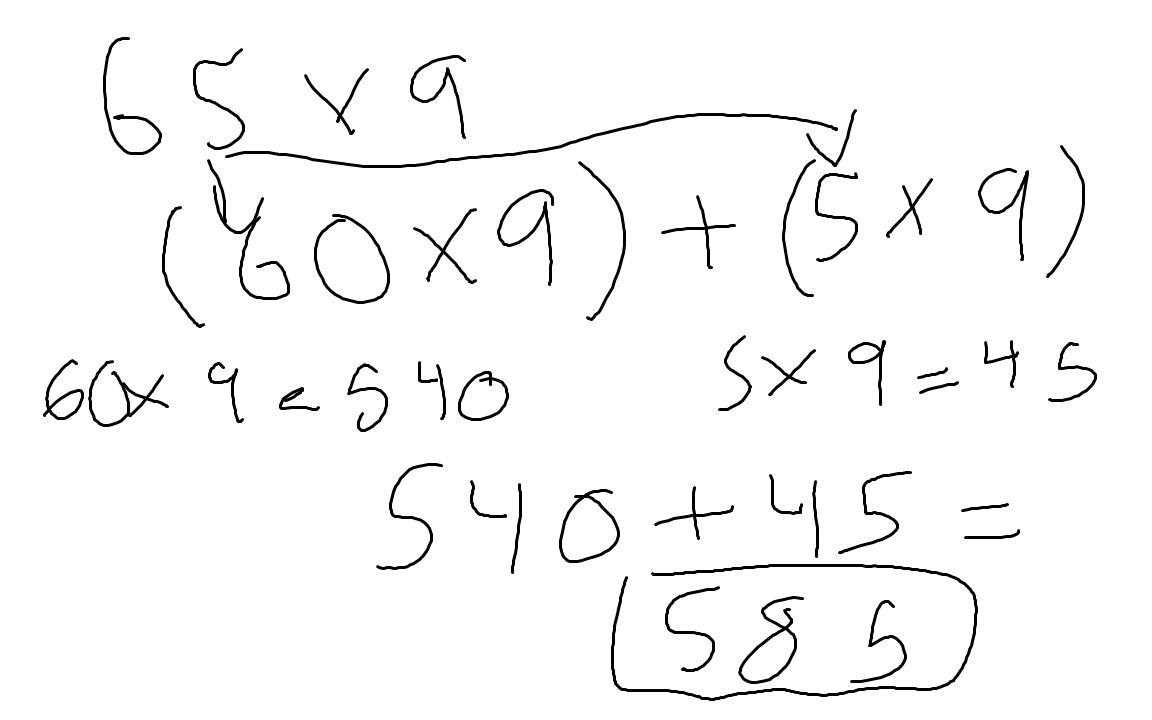 65 x 9
(60 x 9) + (5 x 9)
60 x 9 = 540 5 x 9 = 45
540 + 45 =
585